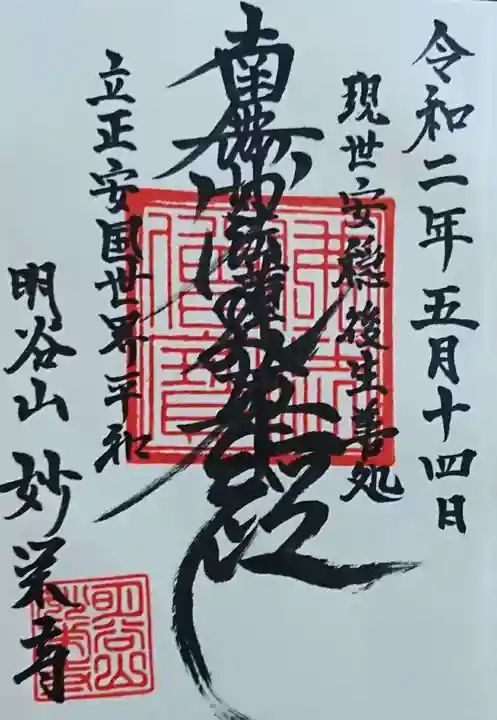 令和二年五月十四日
現世安穏後生善処
南無妙法蓮華経
立正安国世界平和
明谷山 妙栄寺